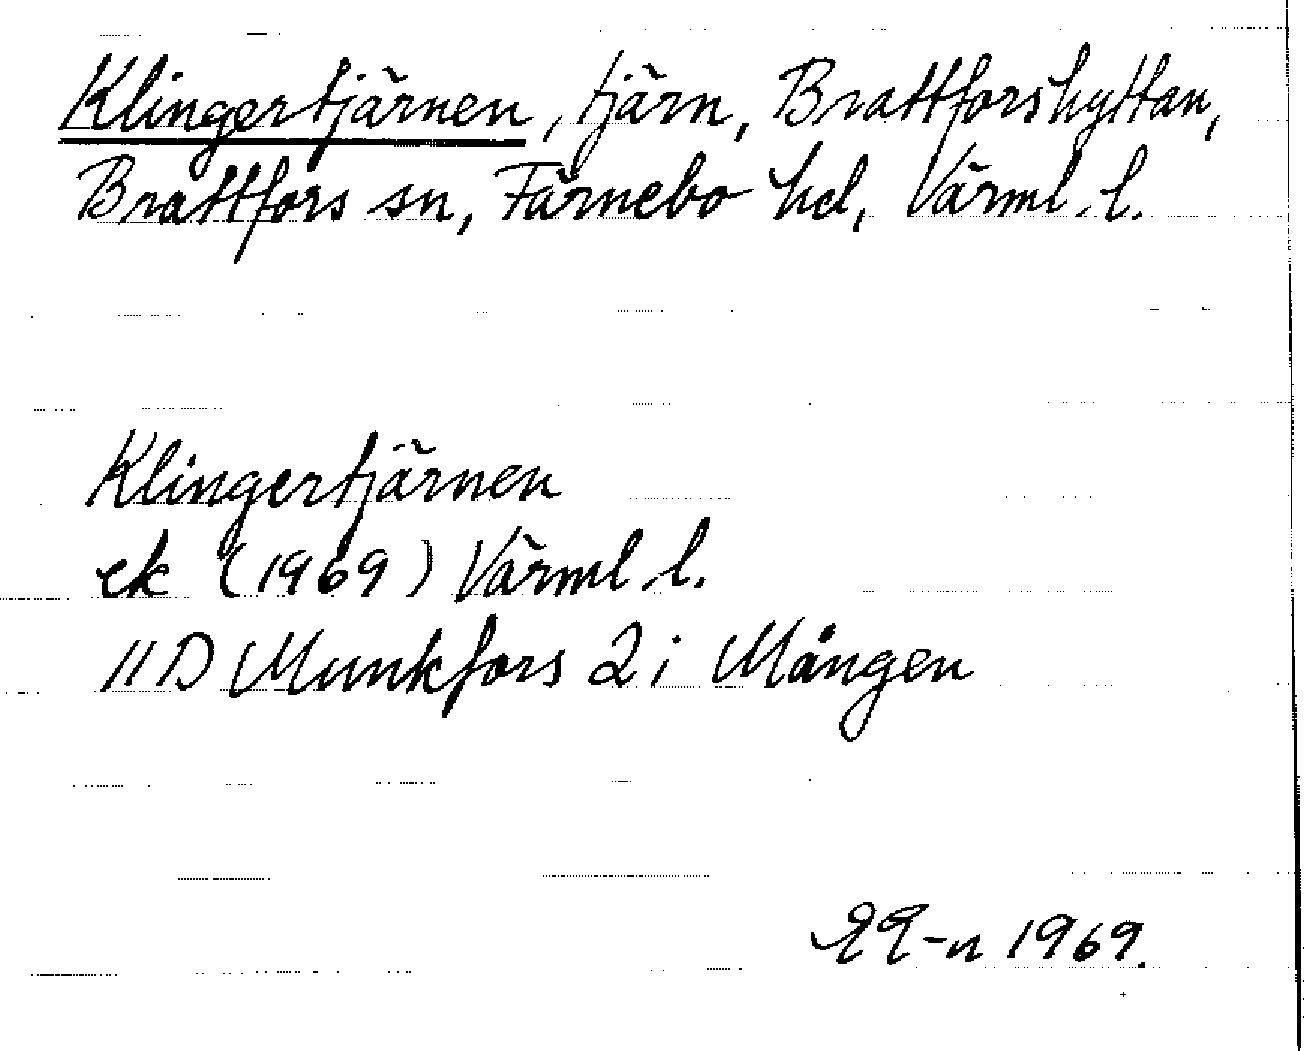 Klingertjärnen, tjärn, Brattforshyttan,
Brattfors sn, Färnebo hd, Värml. l.
Klingertjärnen
ek (1969) Värml. l.
11D Munkfors 2 i Mången
1969.